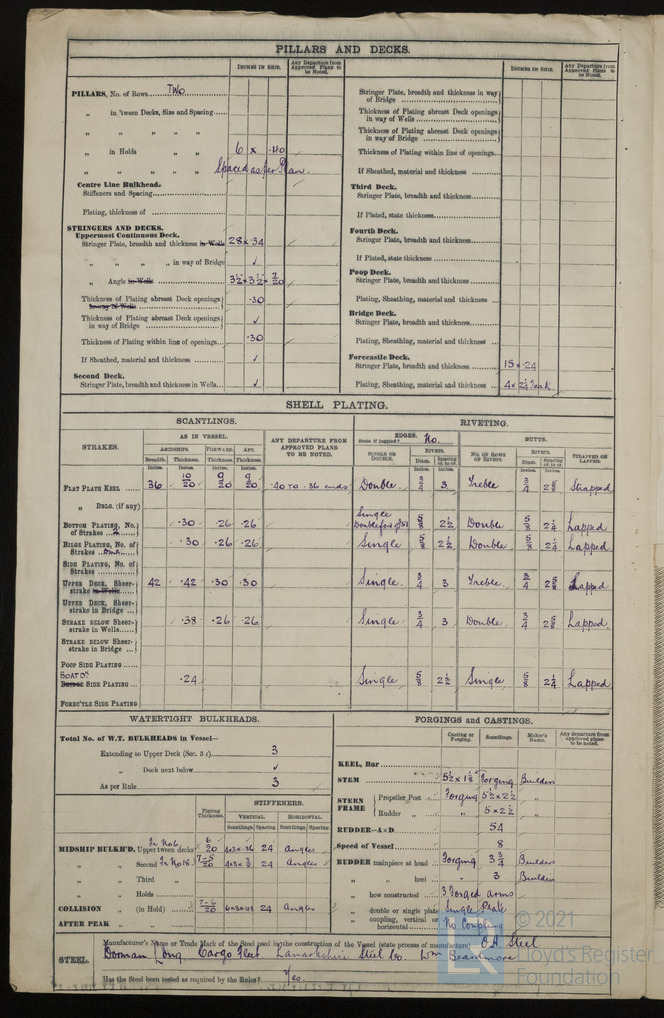 PILLARS AND DECKS.
INCHES IN SHIP.
Any Departure from Approved Plans to be Noted.
PILLARS, No. of Rows TWO
„ in 'tween Decks, Size and Spacing
„ „ „ „ „
„ in Holds „ „ 6 x .40
„ „ „ „ „ Spaced as per Plan.
Centre Line Bulkhead.
Stiffeners and Spacing
Plating, thickness of
STRINGERS AND DECKS.
Uppermost Continuous Deck.
Stringer Plate, breadth and thickness in Wells 28 x .34
„ „ „ „ in way of Bridge ✓
„ Angle in Wells 3½ x 3½ x 7/20
Thickness of Plating abreast Deck openings in way of Wells .30
Thickness of Plating abreast Deck openings in way of Bridge ✓
Thickness of Plating within line of openings .30
If Sheathed, material and thickness ✓
Second Deck.
Stringer Plate, breadth and thickness in Wells ✓
INCHES IN SHIP.
Any Departure from Approved Plans to be Noted.
Stringer Plate, breadth and thickness in way of Bridge
Thickness of Plating abreast Deck openings in way of Wells
Thickness of Plating abreast Deck openings in way of Bridge
Thickness of Plating within line of openings
If Sheathed, material and thickness
Third Deck.
Stringer Plate, breadth and thickness
If Plated, state thickness
Fourth Deck.
Stringer Plate, breadth and thickness
If Plated, state thickness
Poop Deck.
Stringer Plate, breadth and thickness
Plating, Sheathing, material and thickness
Bridge Deck.
Stringer Plate, breadth and thickness
Plating, Sheathing, material and thickness
Forecastle Deck.
Stringer Plate, breadth and thickness 15 x .24
Plating, Sheathing, material and thickness 4 x 2¼ Teak
SHELL PLATING.
SCANTLINGS.
RIVETING.
STRAKES.
AS IN VESSEL.
ANY DEPARTURE FROM APPROVED PLANS TO BE NOTED.
EDGES.
State if joggled? No.
BUTTS.
AMIDSHIPS. FORWARD. AFT.
SINGLE OR DOUBLE. RIVETS. NO. OF ROWS OF RIVETS. RIVETS. STRAPPED OR LAPPED.
Breadth. Thickness. Thickness. Thickness.
Diam. Spacing cr. to cr. Diam. Spacing cr. to cr.
Inches. Inches. Inches. Inches. Inches. Inches. Inches. Inches.
FLAT PLATE KEEL 36 10/20 9/20 9/20 .40 to .36 ends Double ¾ 3 Treble ¾ 2⅝ Strapped
„ DBLG. (if any)
BOTTOM PLATING, No. of Strakes .30 .26 .26 Single ⅝ 2½ Double ⅝ 2¼ Lapped
BILGE PLATING, No. of Strakes one .30 .26 .26 Single ⅝ 2½ Double ⅝ 2¼ Lapped
SIDE PLATING, No. of Strakes
UPPER DECK, Sheerstrake in Wells 42 .42 .30 .30 Single. ¾ 3 Treble ¾ 2⅝ Lapped
UPPER DECK, Sheerstrake in Bridge
STRAKE BELOW Sheerstrake in Wells .38 .26 .26 Single ¾ 3 Double ¾ 2⅝ Lapped.
STRAKE BELOW Sheerstrake in Bridge
POOP SIDE PLATING
BOAT DK BRIDGE SIDE PLATING .24 Single ⅝ 2½ Single ⅝ 2¼ Lapped
FOREC'TLE SIDE PLATING
WATERTIGHT BULKHEADS.
Total No. of W.T. BULKHEADS in Vessel—
Extending to Upper Deck (Sec. 3 c) 3
„ Deck next below ✓
As per Rule 3
Plating Thickness.
STIFFENERS.
VERTICAL HORIZONTAL
Scantlings. Spacing. Scantlings. Spacing.
In No 6
MIDSHIP BULKH'D, Upper tween decks 6/20 4x3x.36 24 Angles
„ „ Second In No 18 7-5/20 4x3x 24 Angles
„ „ Third „
„ „ Holds
COLLISION „ (in Hold) 7-6/20 6x3x.48 24 Angles
AFTER PEAK „ „
FORGINGS and CASTINGS.
Casting or Forging. Scantlings. Maker's Name. Any departure from approved plans to be noted.
KEEL, Bar
STEM 5½ x 1⅛ Forging Builders
STERN FRAME Propeller Post Forging 5½ x 2½ „
Rudder „ „ 5 x 2½ „
RUDDER—A×D 54
Speed of Vessel 8
RUDDER mainpiece at head Forging 3¾ Builders
„ „ heel „ 3 Builders
„ how constructed 3 Forged arms
„ double or single plate Single Plate
„ coupling, vertical or horizontal No Coupling
STEEL.
Manufacturer's Name or Trade Mark of the Steel used in the construction of the Vessel (state process of manufacture) O.H. Steel
Dorman Long. Cargo Fleet. Lanarkshire Steel Co. Wm Beardmore
Has the Steel been tested as required by the Rules? Yes.
© 2021
Lloyd's Register
Foundation